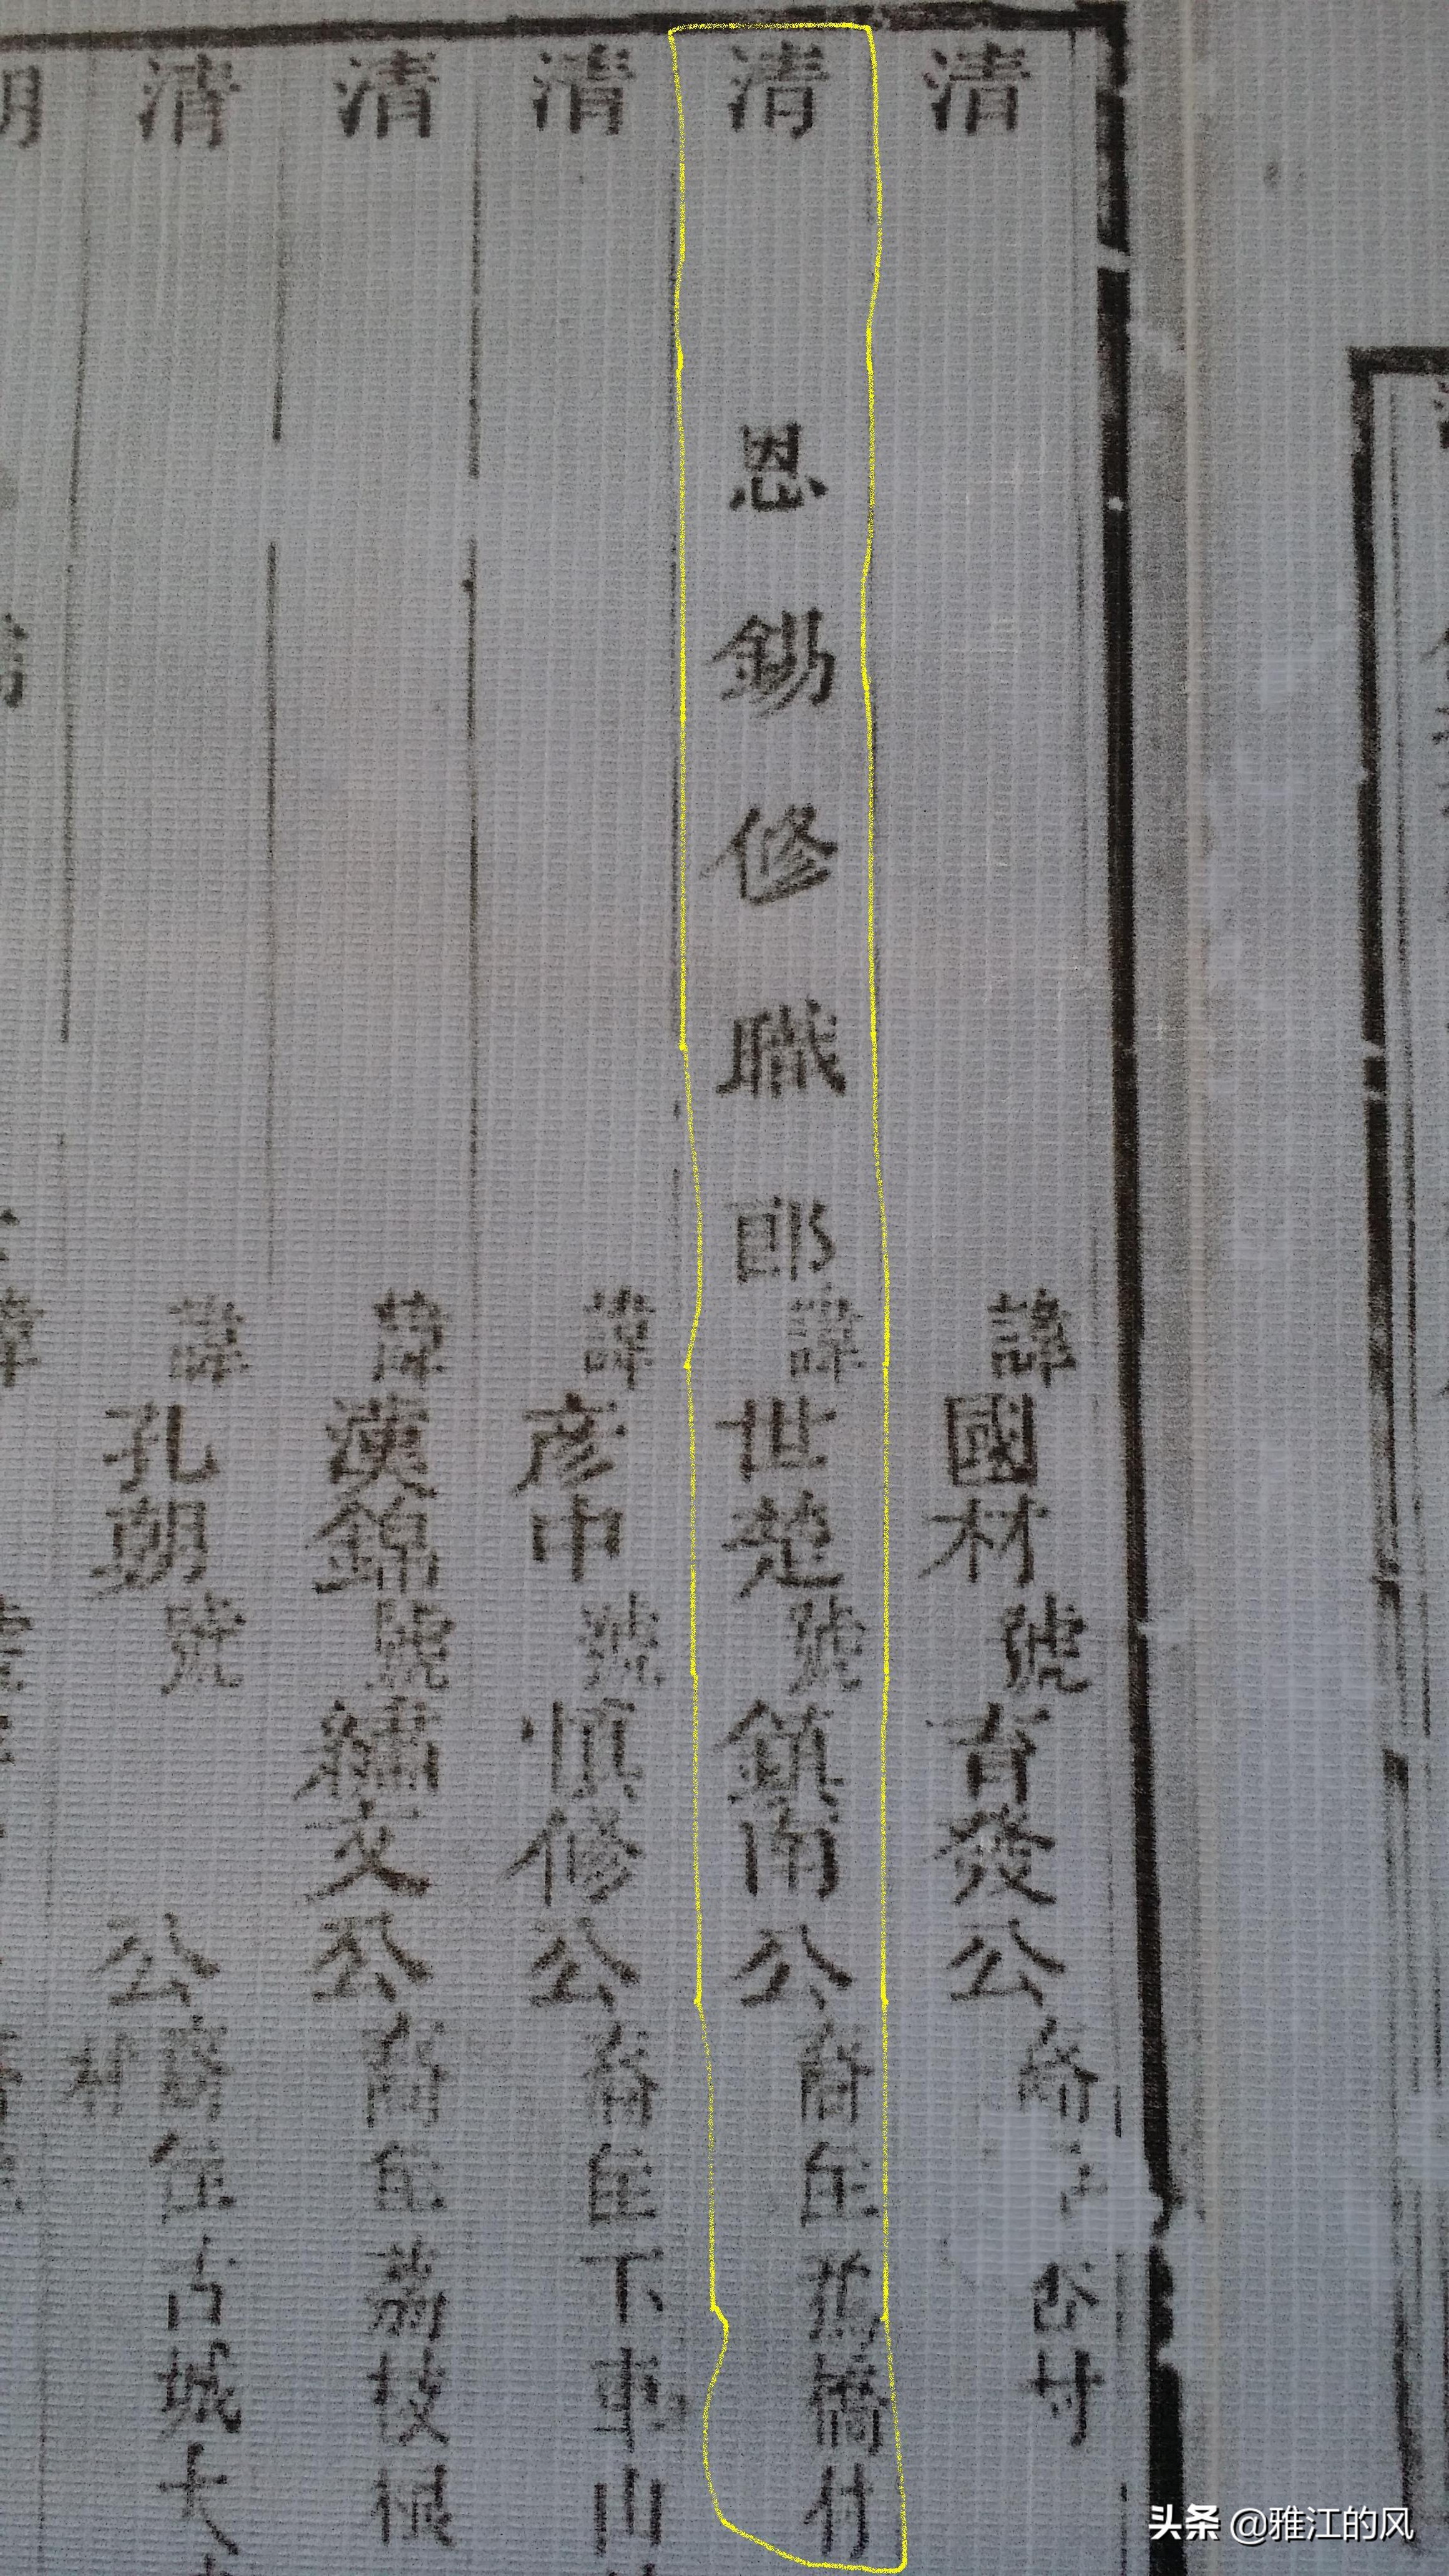 清 諱國材號育發公裔
清 恩錫修職郎諱世楚號鎮南公裔住 橋村
清 諱彥中號慎修公裔住下車山
清 諱漢錦號繡文公裔住荔枝根
清 諱孔朝號 公裔住古城大村
頭条 @雅江的风